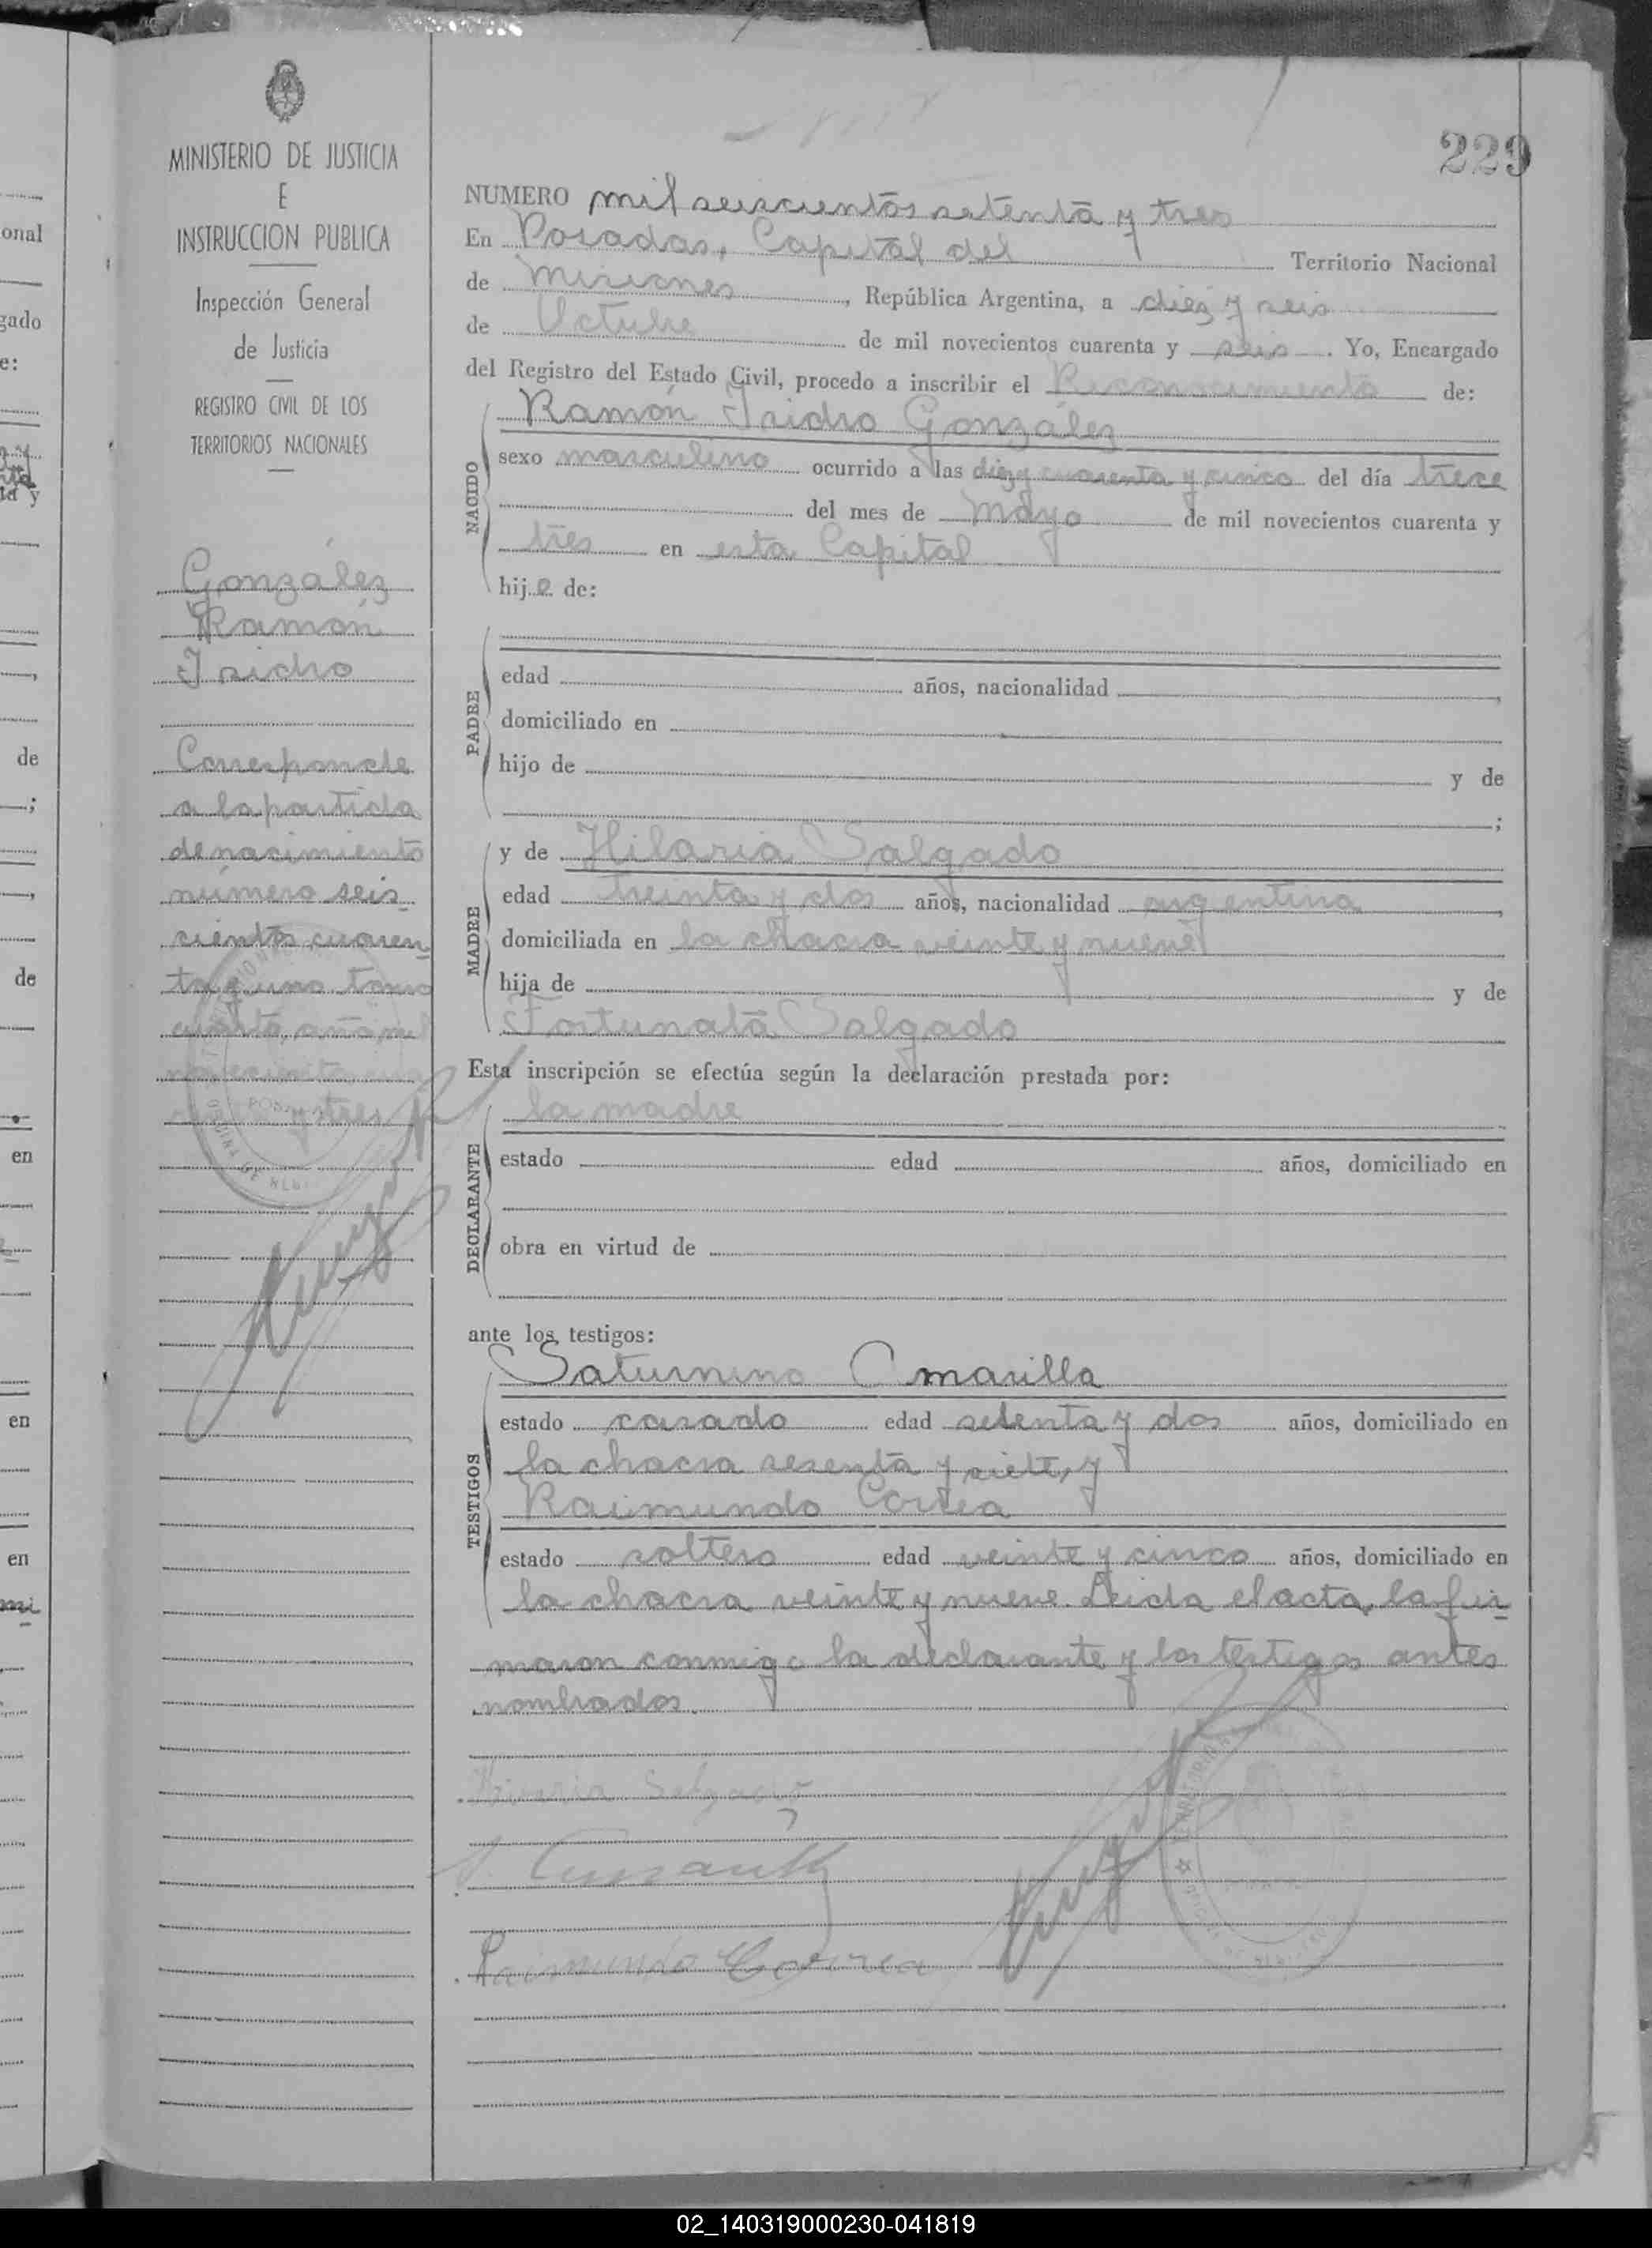 229
MINISTERIO DE JUSTICIA
E
INSTRUCCION PUBLICA
Inspección General
de Justicia
REGISTRO CIVIL DE LOS
TERRITORIOS NACIONALES
González
Ramón
Isidro
Corresponde
a la partida
de nacimiento
número seis-
cientos cuaren-
ta y uno tomo
cuarto, año mil
novecientos cua
renta y tres
NUMERO mil seiscientos setenta y tres
En Posadas, Capital del Territorio Nacional
de Misiones, República Argentina, a diez y seis
de Octubre de mil novecientos cuarenta y seis. Yo, Encargado
del Registro del Estado Civil, procedo a inscribir el Reconocimiento de:
NACIDO
Ramón Isidro González
sexo masculino ocurrido a las diez y cuarenta y cinco del día trece
del mes de Mayo de mil novecientos cuarenta y
tres en esta Capital
hijo de:
PADRE
edad años, nacionalidad ,
domiciliado en
hijo de y de
;
MADRE
y de Hilaria Salgado
edad treinta y dos años, nacionalidad argentina,
domiciliada en la chacra veinte y nueve
hija de y de
Fortunata Salgado
Esta inscripción se efectúa según la declaración prestada por:
DECLARANTE
la madre
estado edad años, domiciliado en
obra en virtud de
ante los testigos:
TESTIGOS
Saturnino Amarilla
estado casado edad setenta y dos años, domiciliado en
la chacra sesenta y siete, y
Raimundo Correa
estado soltero edad veinte y cinco años, domiciliado en
la chacra veinte y nueve. Leida el acta, la fir-
maron conmigo la declarante y los testigos antes
nombrados.
Hilaria Salgado
Raimundo Correa
02_140319000230-041819